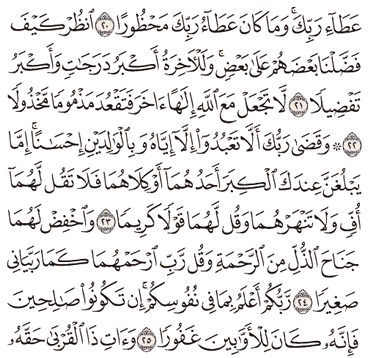 عَطَآءِ رَبِّكَ ۚ وَمَا كَانَ عَطَآءُ رَبِّكَ مَحْظُورًا ٢٠ ٱنظُرْ كَيْفَ
فَضَّلْنَا بَعْضَهُمْ عَلَىٰ بَعْضٍ ۚ وَلَلْءَاخِرَةُ أَكْبَرُ دَرَجَٰتٍ وَأَكْبَرُ
تَفْضِيلًا ٢١ لَّا تَجْعَلْ مَعَ ٱللَّهِ إِلَٰهًا ءَاخَرَ فَتَقْعُدَ مَذْمُومًا مَّخْذُولًا
٢٢ ۞ وَقَضَىٰ رَبُّكَ أَلَّا تَعْبُدُوٓا۟ إِلَّآ إِيَّاهُ وَبِٱلْوَٰلِدَيْنِ إِحْسَٰنًا ۚ إِمَّا
يَبْلُغَنَّ عِندَكَ ٱلْكِبَرَ أَحَدُهُمَآ أَوْ كِلَاهُمَا فَلَا تَقُل لَّهُمَآ
أُفٍّ وَلَا تَنْهَرْهُمَا وَقُل لَّهُمَا قَوْلًا كَرِيمًا ٢٣ وَٱخْفِضْ لَهُمَا
جَنَاحَ ٱلذُّلِّ مِنَ ٱلرَّحْمَةِ وَقُل رَّبِّ ٱرْحَمْهُمَا كَمَا رَبَّيَانِى
صَغِيرًا ٢٤ رَّبُّكُمْ أَعْلَمُ بِمَا فِى نُفُوسِكُمْ ۚ إِن تَكُونُوا۟ صَٰلِحِينَ
فَإِنَّهُۥ كَانَ لِلْأَوَّٰبِينَ غَفُورًا ٢٥ وَءَاتِ ذَا ٱلْقُرْبَىٰ حَقَّهُۥ